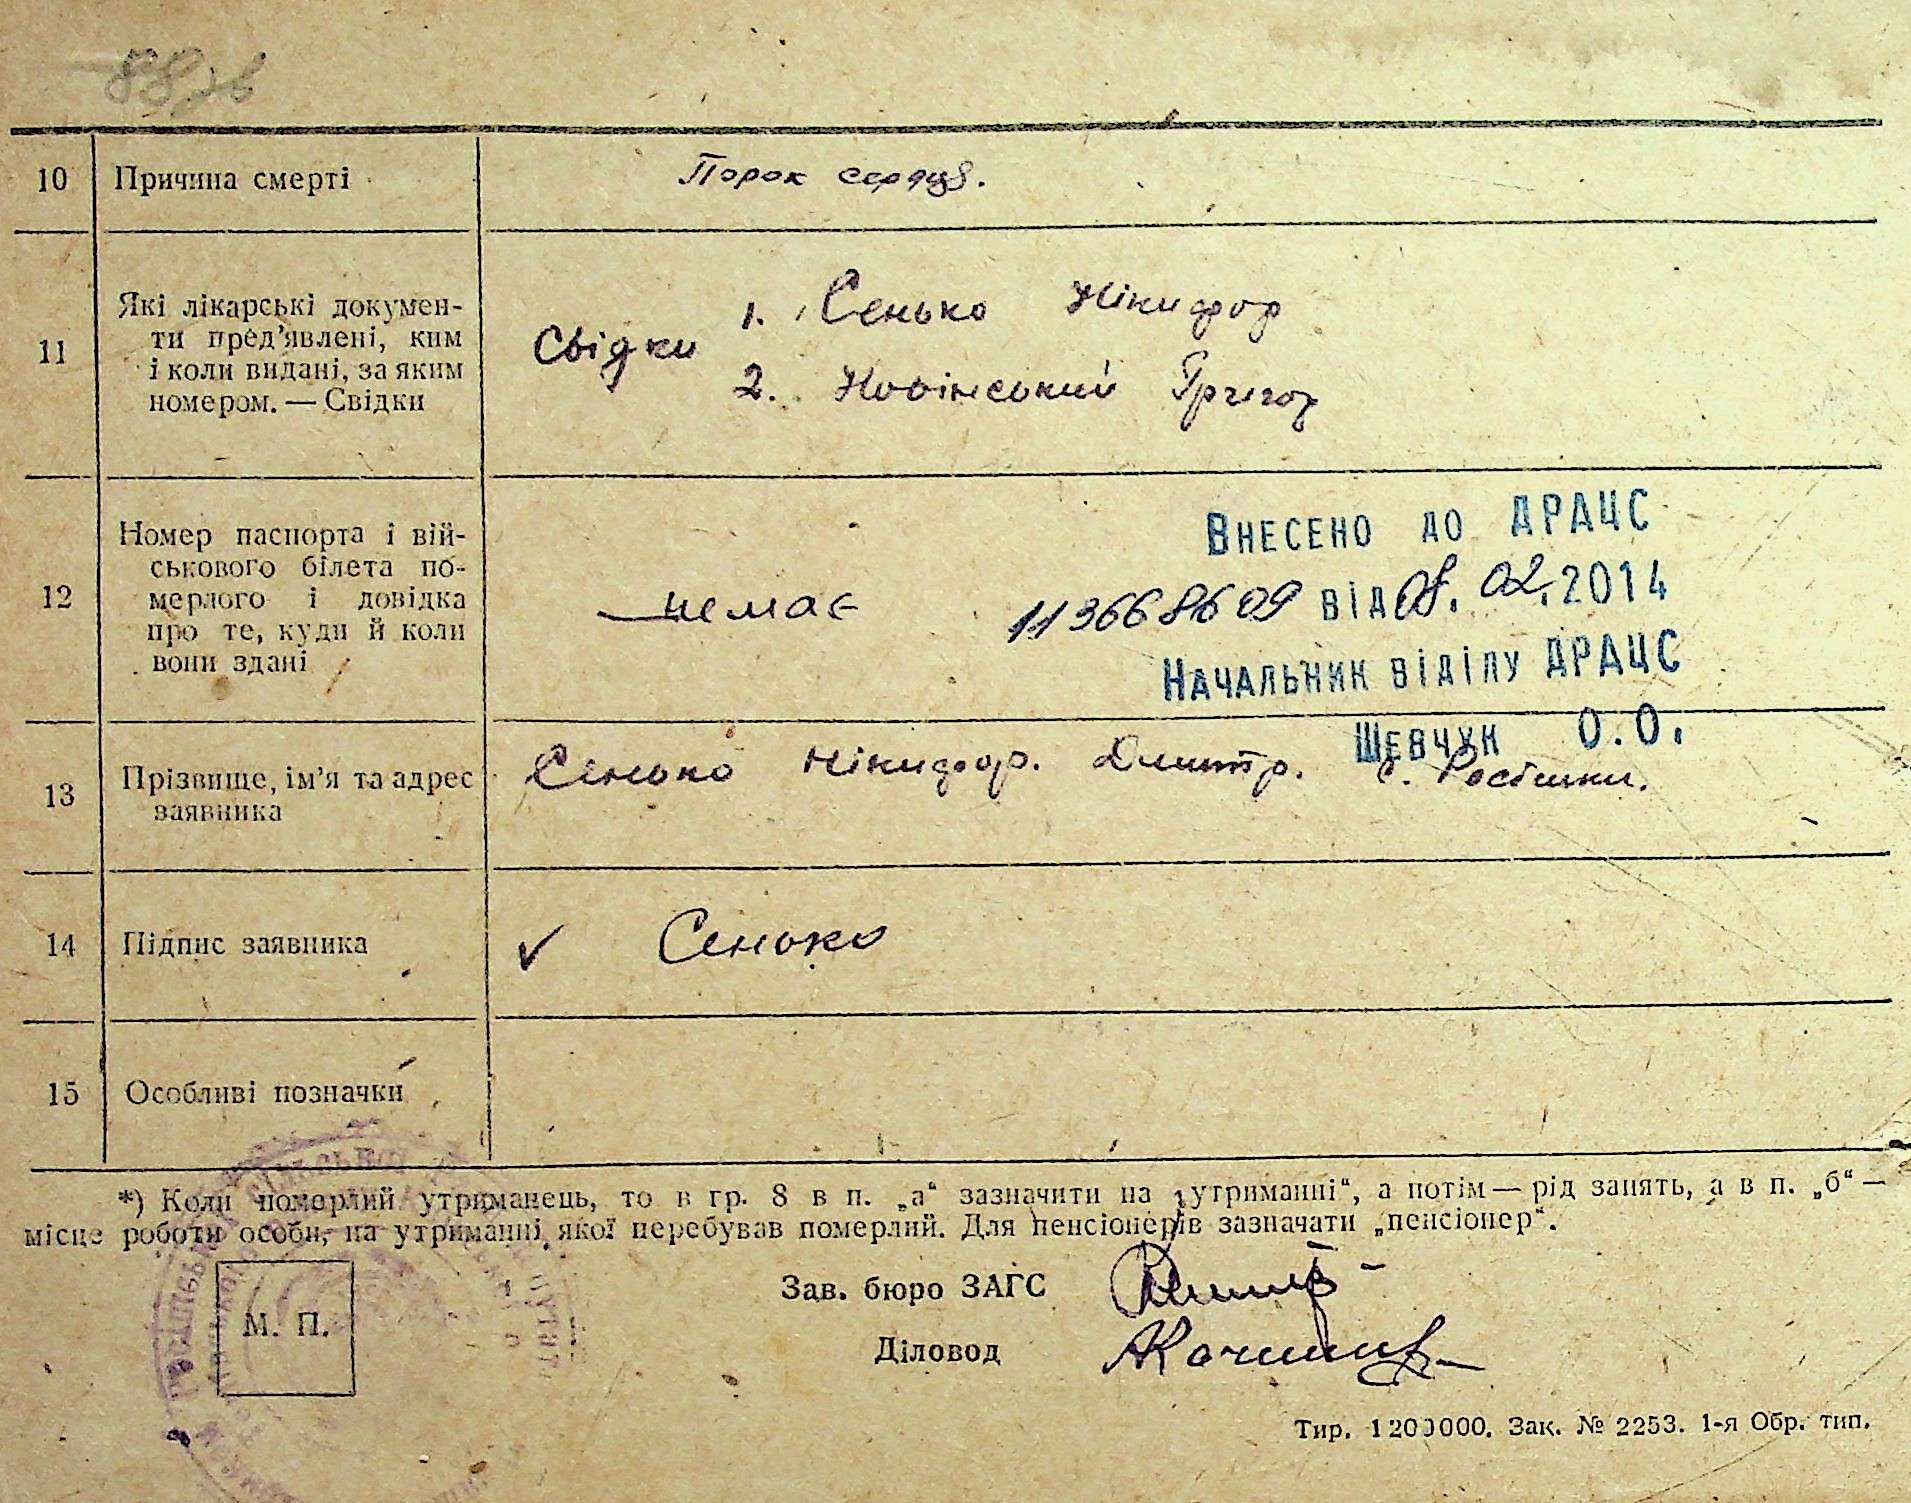 10 Причина смерті Порок серця.
11 Які лікарські документи пред’явлені, ким і коли видані, за яким номером. — Свідки
Свідки
1. Сенько Нікифор
2. Новінський Григор
12 Номер паспорта і вій-
ськового білета по-
мерлого і довідка
про те, куди й коли
вони здані
немає
Внесено до ДРАЦС
113668609 від 08.02.2014
Начальник відділу ДРАЦС
Шевчук О.О.
13 Прізвище, ім’я та адрес
заявника
Сенько Нікифор. Дмитр. с. Росішки.
14 Підпис заявника ✓ Сенько
15 Особливі позначки
*) Коли померлий утриманець, то в гр. 8 в п. „а“ зазначити на „утриманні“, а потім — рід занять, а в п. „б“ —
місце роботи особи, на утриманні якої перебував померлий. Для пенсіонерів зазначати „пенсіонер“.
М. П.
Зав. бюро ЗАГС
Діловод
Тир. 1200000. Зак. № 2253. 1-я Обр. тип.